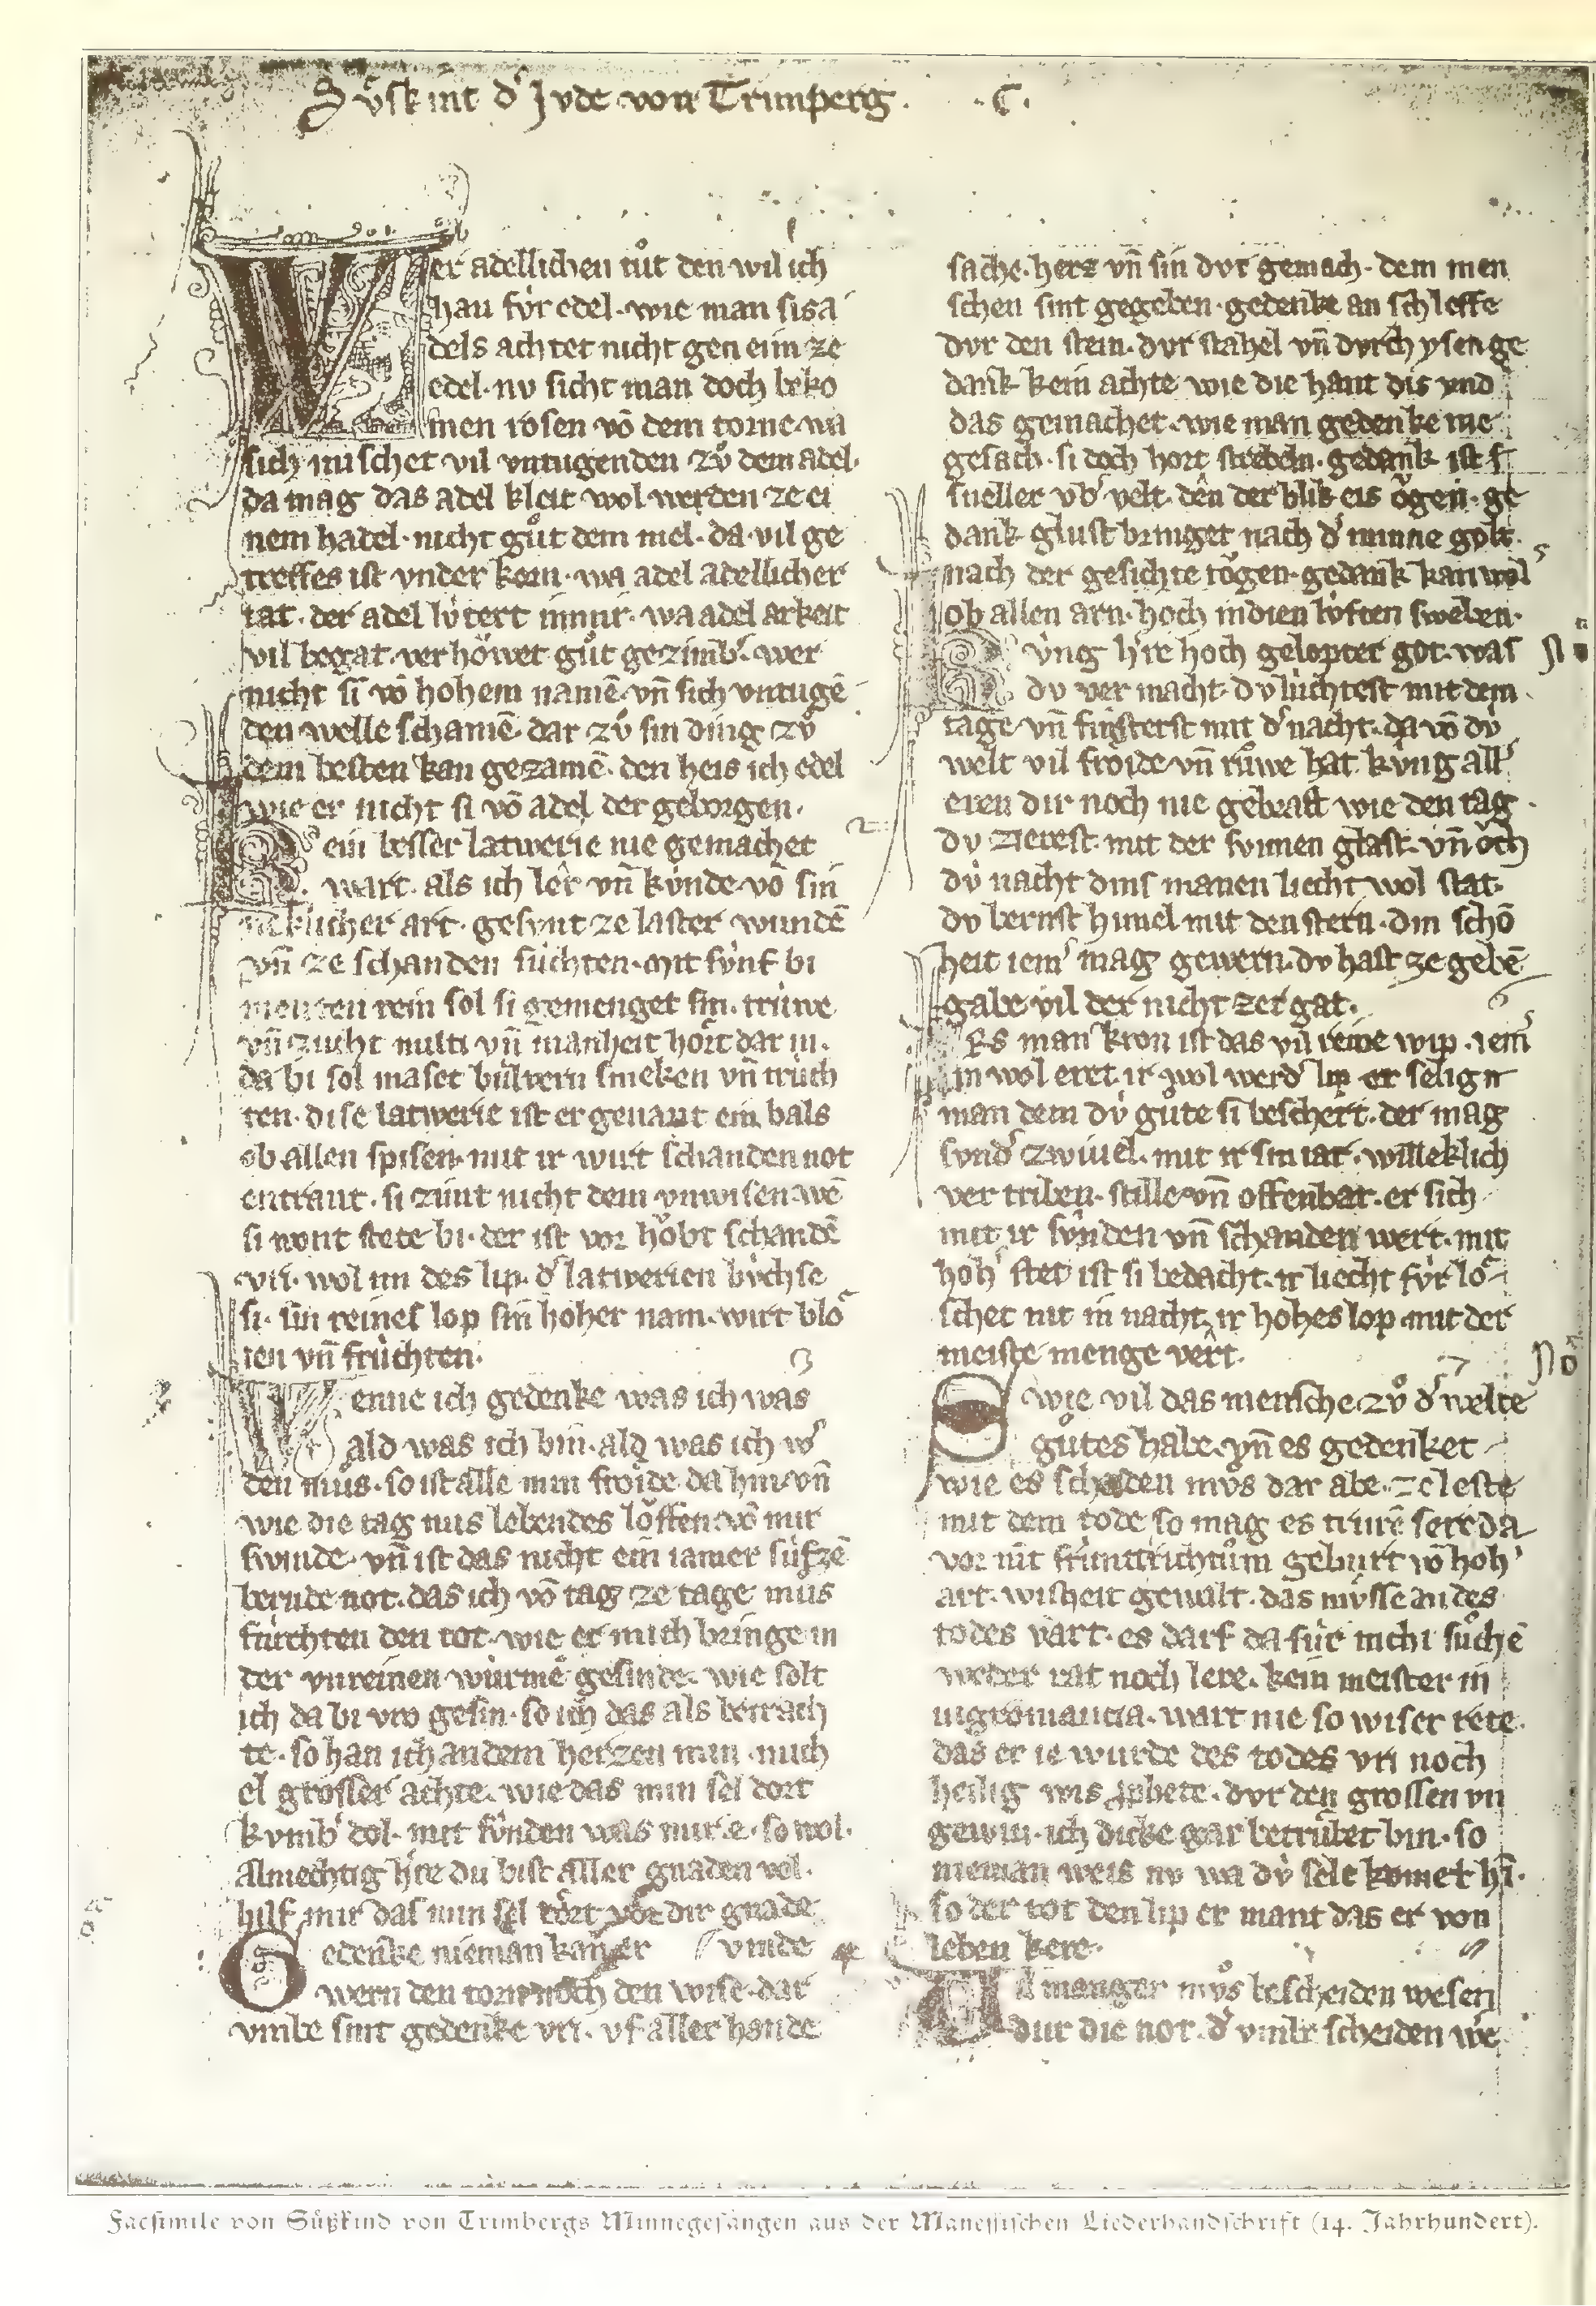 Sůskint d' Jvde von Trimperg. .C.
Wer adellichen tůt den wil ich
han fv́r edel. wie man sis a
dels achtet nicht gen eim ze
edel. nv sicht man doch beko
men rosen vō dem torne. wa
sich mischet vil vntugenden zů dem adel.
da mag das adel kleit wol werden ze ei
nem hadel. nicht gůt dem mel. da vil ge
treffes ist vnder korn. wa adel adellicher
tat. der adel lv́tert
wa adel arkeit
vil begat. ver höwet gůt gezimb'. wer
nicht si vō hohem namē. vn̄ sich vntugē
den welle schamē. dar zů sin ding zů
dem besten kan gezamē. den heis ich edel
wie er nicht si vō adel der geborgen.
Kein besser latwerie nie gemachet
wart. als ich ler vn̄ kv́nde. vō sin
neklicher art. gesvnt ze laster wundē
vn̄ ze schanden súchten. mit fv́nf bi
menten rein sol si gemenget sin. trúwe
vn̄ zucht milti vn̄ manheit hört dar in.
da bi sol maset bulvern smeken vn̄ trúch
ten. dise latwerie ist er genant ein bals
ob allen spisen. mit ir wirt schanden not
entrant. si zimt nicht dem vnwisen. wē
si wont stete bi. der ist vor höbt schandē
vri. wol im des lip. d' latwerien bv́chse
si. sin reines lop sin hoher nam. wirt blō
ien vn̄ frúchten. 3
Wenne ich gedenke was ich was
ald was ich bin. ald was ich w'
den můs. so ist alle min froide da hin. vn̄
wie die tag mis lebendes löffen. vō mir
swinde. vn̄ ist das nicht ein iamer súfzē
bernde not. das ich vō tag ze tage můs
fúrchten den tot. wie er mich bringe in
der vnreinen wúrme gesinde. wie solt
ich da bi vro gesin. so ich das als betrach
te. so han ich an dem herzen min. mich
el grosser achte. wie das min sel dort
kvmb' dol. mit sv́nden was mir e. so wol.
Almechtig h're du bist aller gnaden vol.
hilf mir das min sel dort vor dir gnade
Gedenke nieman kan er vinde
wern den toren noch den wise. dar
vmbe sint gedenke vri. vf aller hande
sache. herz vn̄ sin dvr gemach. dem men
schen sint gegeben. gedenke an schleffe
dvr den stein. dvr stahel vn̄ dvrch ysen ge
dank kein achte wie die hant dis vnd
das gemachet. wie man gedenke nie
gesach. si doch hort streben. gedank ist s
sneller vb' velt. dēn der blik eis ögen. ge
dank glust bringet nach d' minne golt.
nach der gesichte tögen. gedank kan wol
ob allen arn. hoch in dien lv́ften sweben. 5
Kv́ng h're hoch gelopter got. was
dv ver macht. dv lúchtest mit dem
tage vn̄ finsterst mit d' nacht. da vō dv́
welt vil fröide vn̄ růwe hat. kv́ng all'
eren dir noch nie gebrast wie den tag
dv zierest. mit der svnnen glast. vn̄ öch
dv́ nacht dins manen liecht wol stat.
dv bernst himel mit den stern. din schō
heit iem' mag gewern. dv hast ze gebē
gabe vil der nicht zergat. 6
Es man kron ist das vil reine wip. iem'
in wol eret. ir wol werd' lip er selig
man dem dv́ gůte si beschert. der mag
svnd' zwiuel. mit ir sin iar. willeklich
ver triben. stille vn̄ offenbar. er sich
mit ir sv́nden vn̄ schanden wert. mit
hoh' stet ist si bedacht. ir liecht fv́r lō
schet nit in nacht. ir hohes lop. mit der
meiste menge vert. 7
Swie vil das mensche zů d' welte
gůtes habe. vn̄ es gedenket
wie es scheiden mv̊s dar abe. ze leste
mit dem tode so mag es trurē sere da
vor nit frúnt richtům geburt vō hoh'
art. wisheit gewalt. das mv́sse an des
todes vart. es darf da fúr nicht sůchē
weder rat noch lere. kein meister in
nigromancia. wart nie so wiser rete.
das er ie wurde des todes vri noch
heilig wis pphete. dvr den grossen vn
gewin. ich dicke gar betrúbet bin. so
nieman weis nv wa dv́ sele komet hī.
so der tot den lip er mant das er von
leben kere.
manger mv̊s bescheiden wesen
dur die not. d' vmbe scheiden we
Facsimile von Süßkind von Trimbergs Minnegesängen aus der Manessischen Liederhandschrift (14. Jahrhundert).